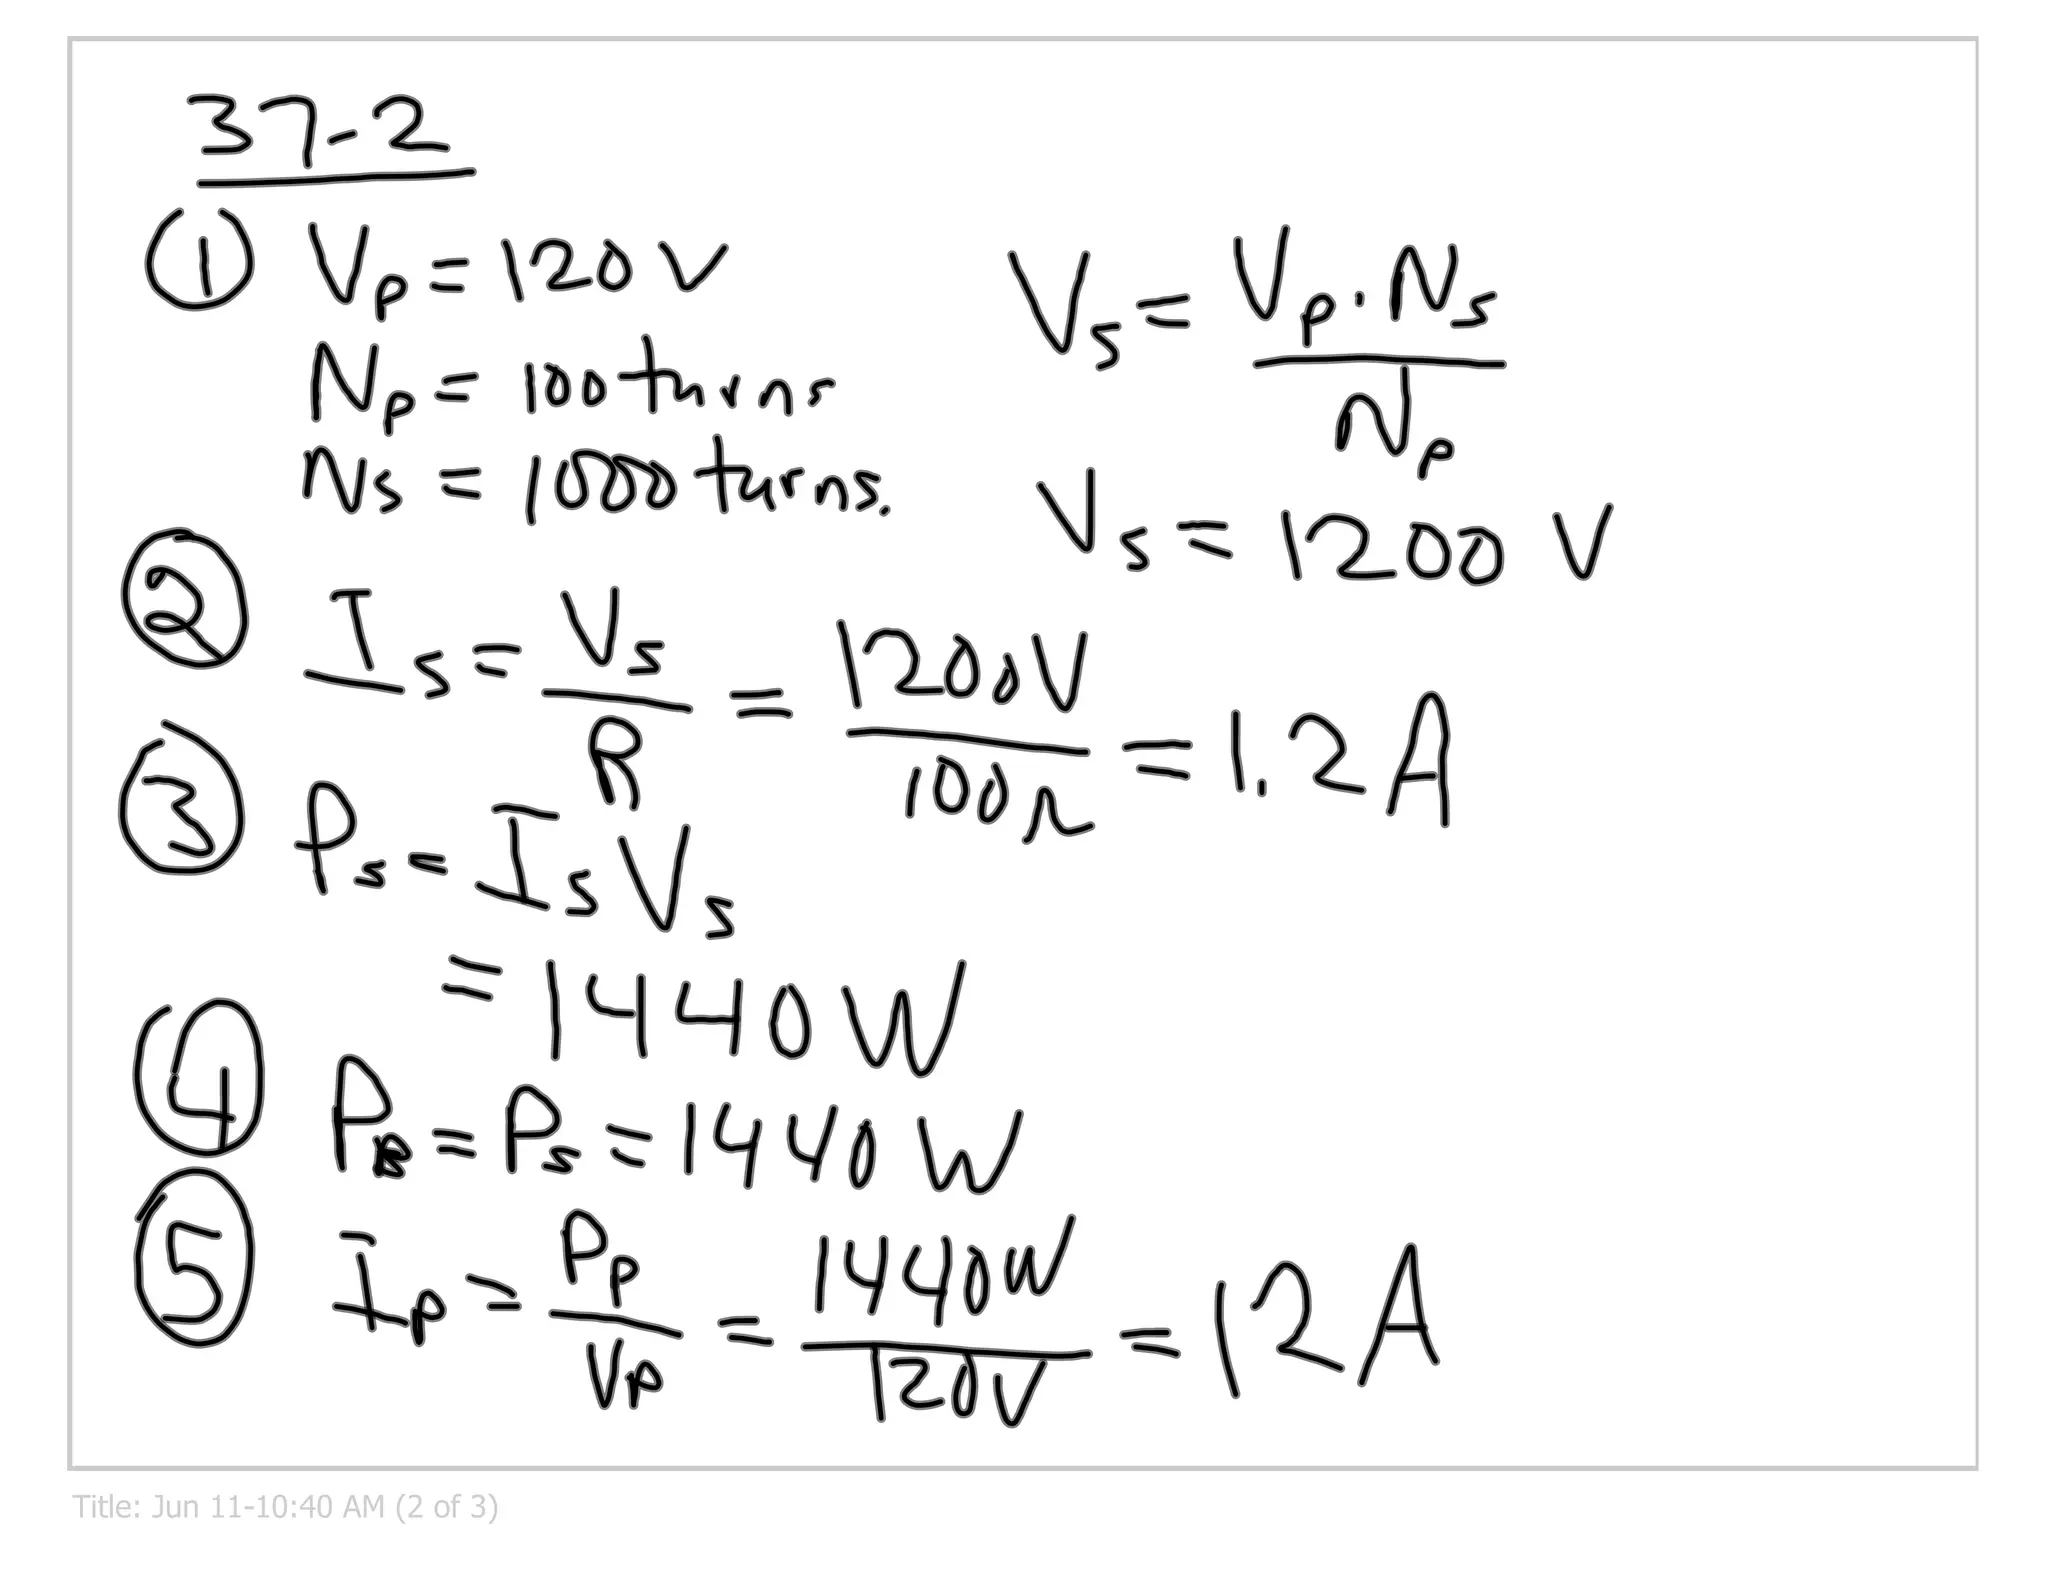 37-2
① Vp = 120 V
Np = 100 turns
Ns = 1000 turns.
Vs = Vp · Ns / Np
Vs = 1200 V
② Is = Vs / R = 1200V / 1000Ω = 1.2 A
③ Ps = Is Vs
= 1440 W
④ Pp = Ps = 1440 W
⑤ Ip = Pp / Vp = 1440W / 120V = 12 A
Title: Jun 11-10:40 AM (2 of 3)